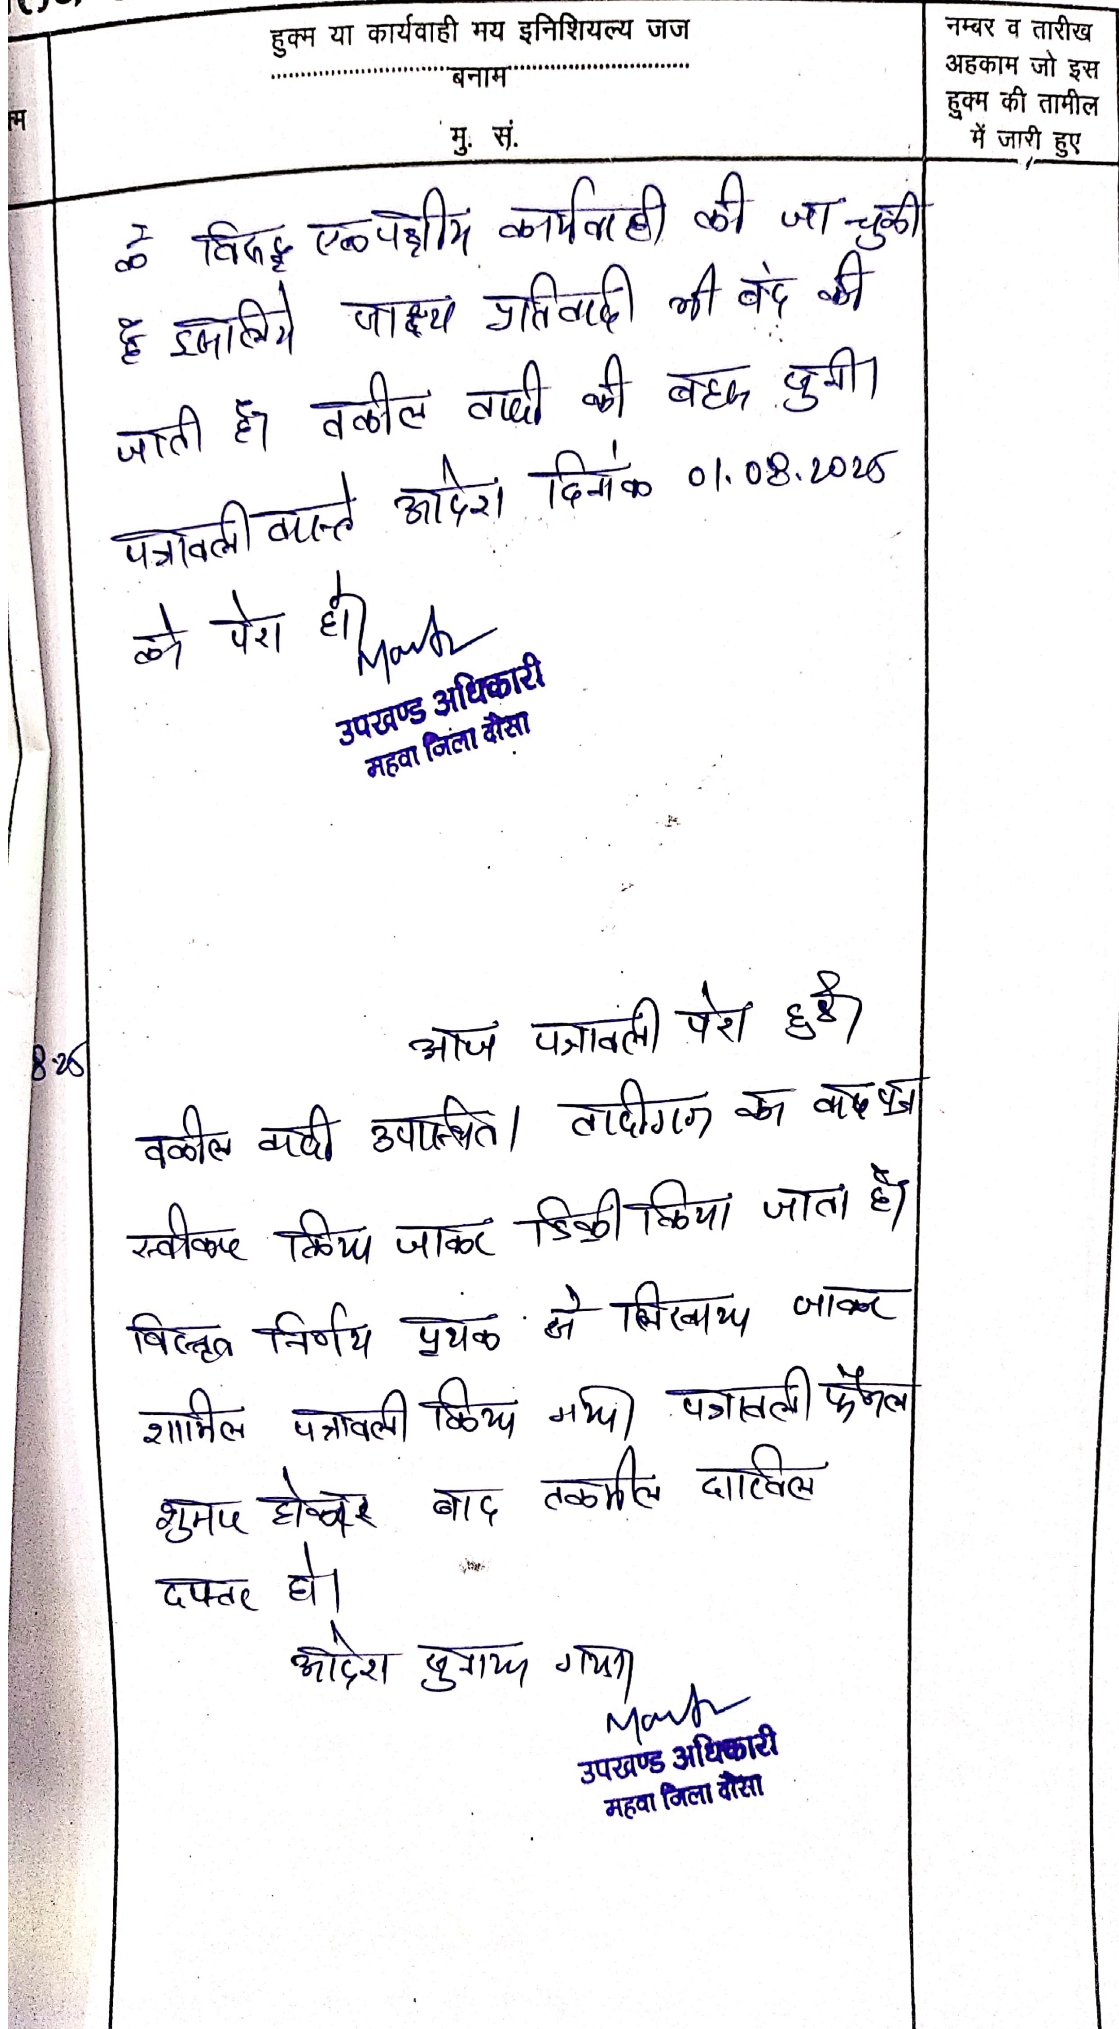 हुक्म या कार्यवाही मय इनिशियल्य जज
बनाम
मु. सं.
नम्बर व तारीख
अहकाम जो इस
हुक्म की तामील
में जारी हुए
के विरूद्ध एकपक्षीय कार्यवाही की जा चुकी
है इसलिये साक्ष्य प्रतिवादी भी बंद की
जाती है। वकील वादी की बहस सुनी।
पत्रावली वास्ते आदेश दिनांक 01.08.2025
को पेश हो।
उपखण्ड अधिकारी
महवा जिला दौसा
8.25
आज पत्रावली पेश हुई।
वकील वादी उपस्थित। वादीगण का वाद पत्र
स्वीकार किया जाकर डिक्री किया जाता है।
विस्तृत निर्णय पृथक से लिखाया जाकर
शामिल पत्रावली किया गया। पत्रावली फैसल
शुमार होकर बाद तकमील दाखिल
दफ्तर हो।
आदेश सुनाया गया।
उपखण्ड अधिकारी
महवा जिला दौसा